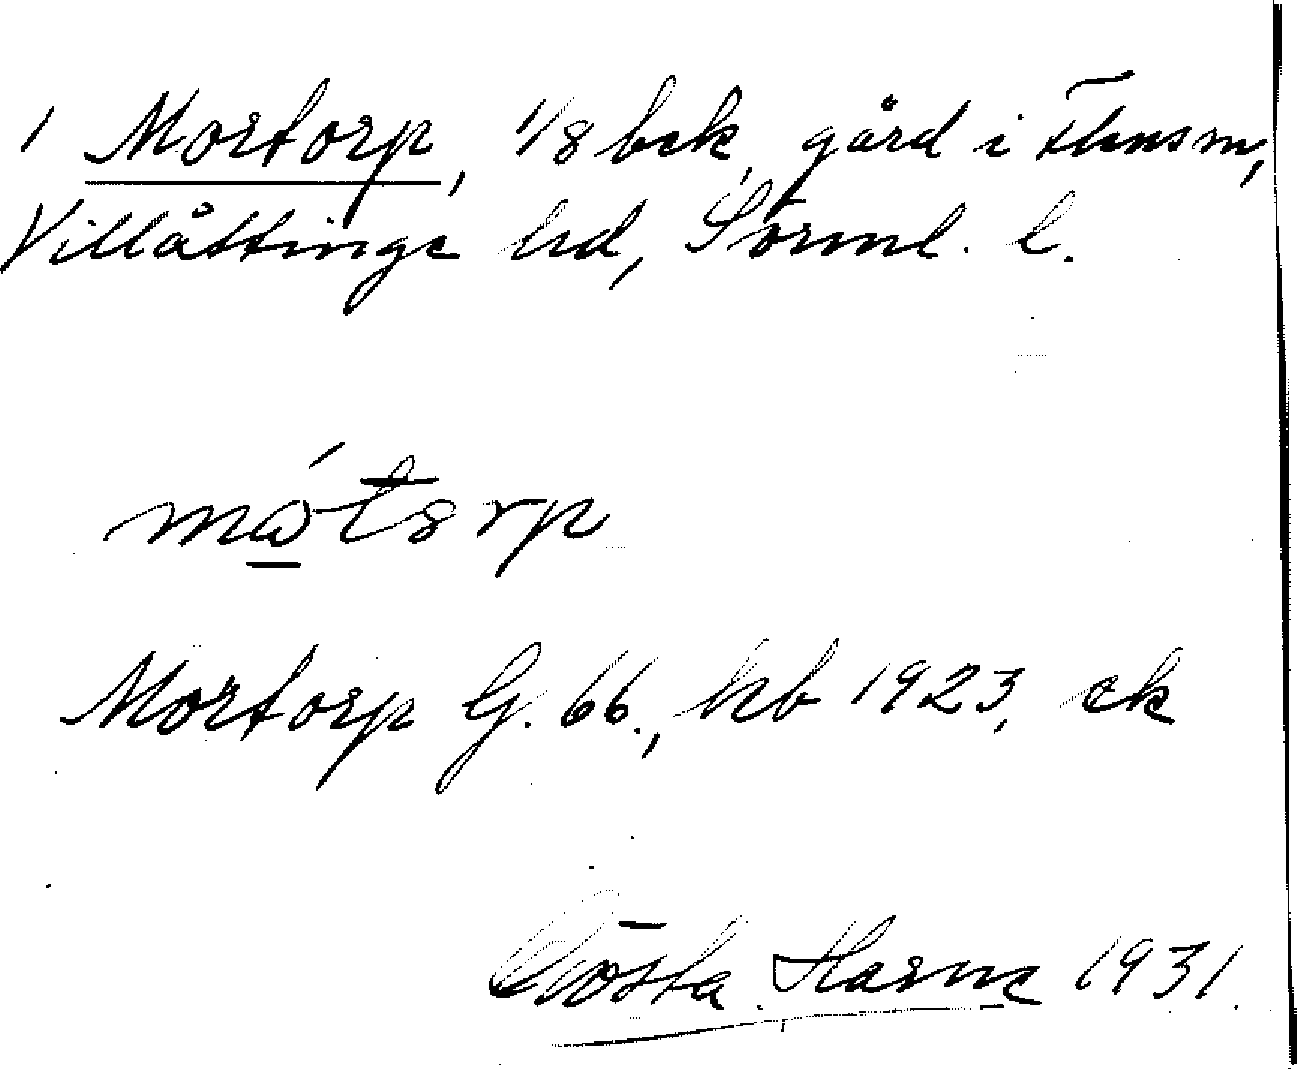 1 Mortorp, 1/8 bek, gård i Flens sn,
Villåttinge hd, Sörml. l.
Mortorp G. 66., hb 1923, ek
Gösta Harne 1931.